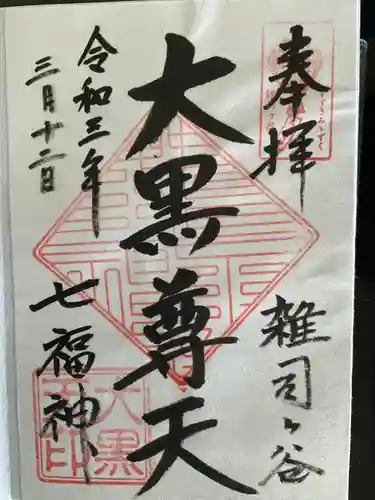 奉拝
雑司ヶ谷
大黒尊天
令和三年
三月十二日
七福神
大黒